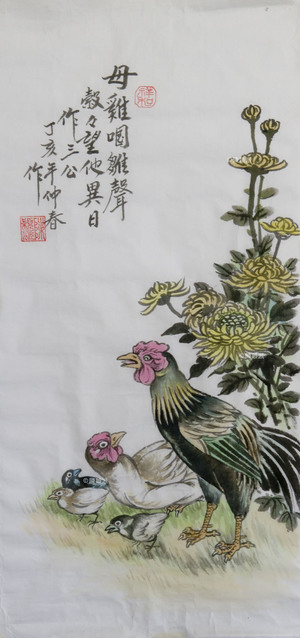 母雞咽雛聲
穀々望他異日
作三公
丁亥年仲春
作